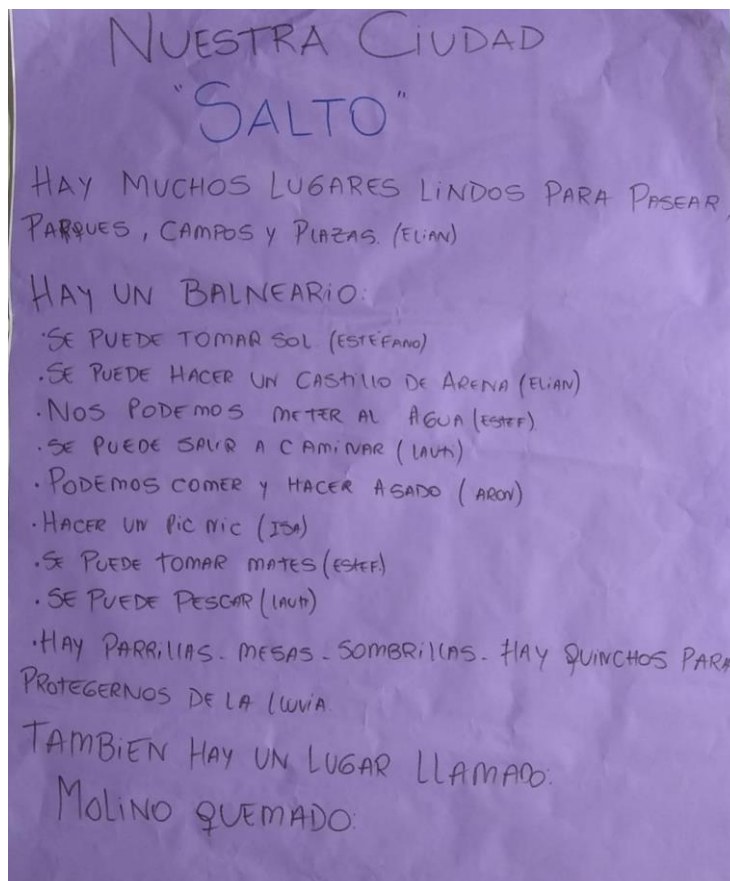 NUESTRA CIUDAD
"SALTO"
HAY MUCHOS LUGARES LINDOS PARA PASEAR,
PARQUES, CAMPOS Y PLAZAS. (ELIAN)
HAY UN BALNEARIO:
·SE PUEDE TOMAR SOL (ESTÉFANO)
·SE PUEDE HACER UN CASTILLO DE ARENA (ELIAN)
·NOS PODEMOS METER AL AGUA (ESTEF)
·SE PUEDE SALIR A CAMINAR (LAUTI)
·PODEMOS COMER Y HACER ASADO (ARON)
·HACER UN PIC NIC (ISA)
·SE PUEDE TOMAR MATES (ESTEF.)
·SE PUEDE PESCAR (LAUTI)
·HAY PARRILLAS - MESAS - SOMBRILLAS - HAY QUINCHOS PARA
PROTEGERNOS DE LA LLUVIA.
TAMBIEN HAY UN LUGAR LLAMADO:
MOLINO QUEMADO: